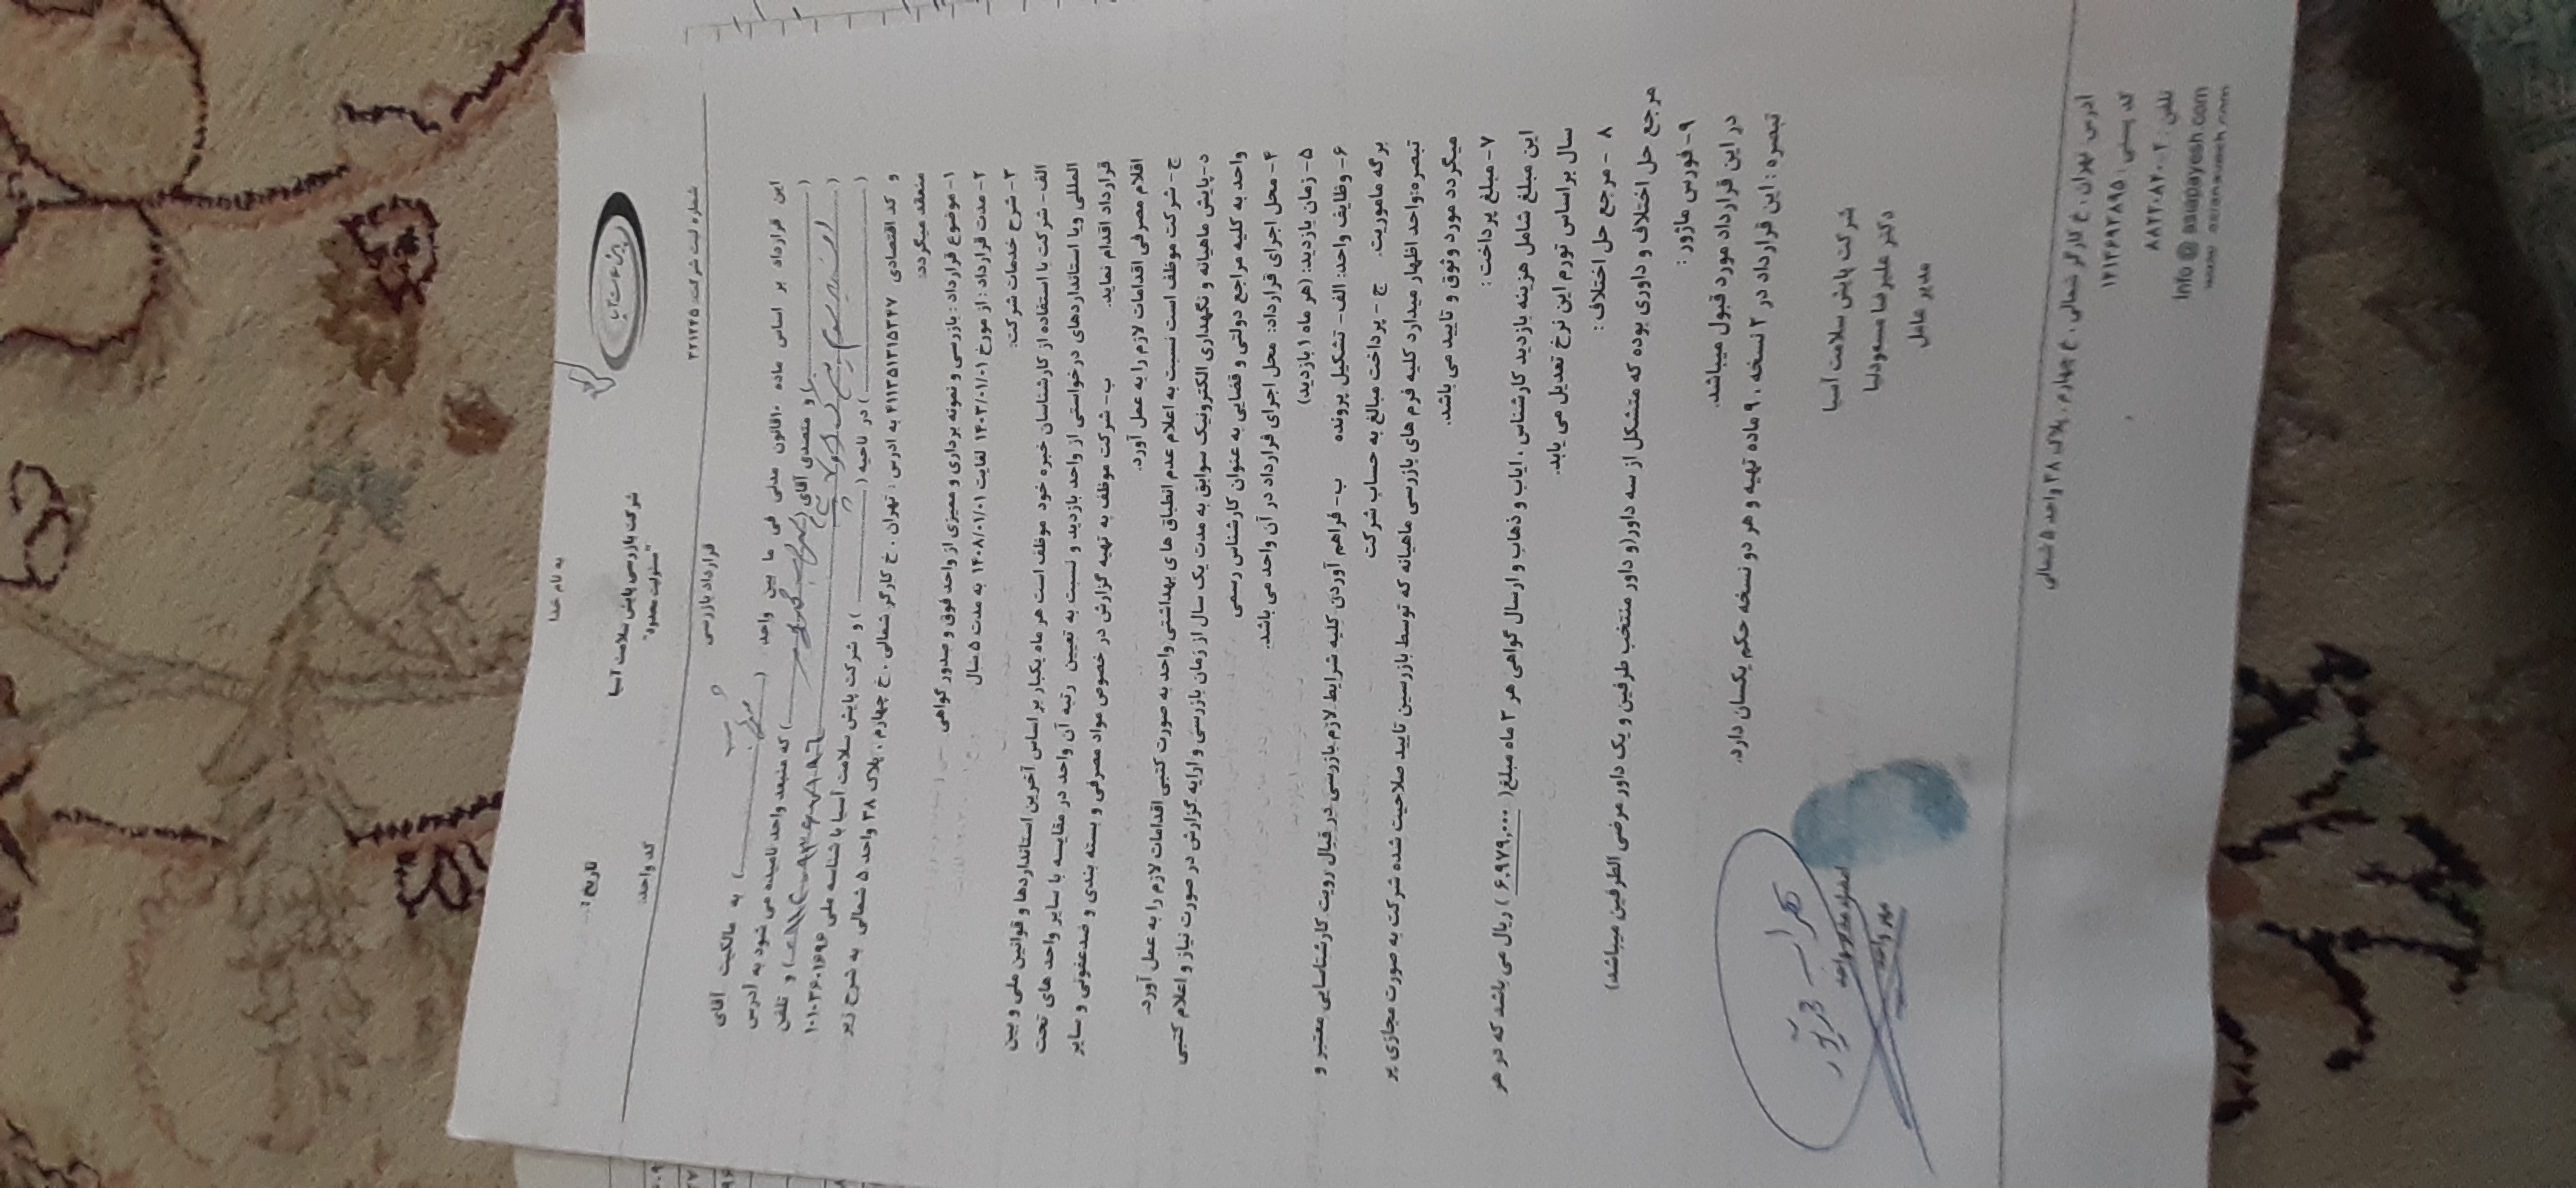 به نام خدا
تاریخ:
شرکت بازرسی پایش سلامت آسیا
"مسئولیت محدود"
کد واحد:
قرارداد بازرسی
شماره ثبت شرکت:
این قرارداد بر اساس ماده ۱۰قانون مدنی فی ما بین واحد به مالکیت آقای
و متصدی آقای که منبعد واحد نامیده می شود به آدرس
و تلفن
در ناحیه و شرکت پایش سلامت آسیا با شناسه ملی
و کد اقتصادی ۴۱۱۳۵۱۳۱۵۳۴۷ به ادرس : تهران ، خ کارگر شمالی ، خ چهارم ، پلاک ۳۸ واحد ۵ شمالی به شرح زیر
منعقد میگردد:
۱- موضوع قرارداد : بازرسی و نمونه برداری و ممیزی از واحد فوق و صدور گواهی
۲- مدت قرارداد : از مورخ ۱۴۰۳/۰۱/۰۱ لغایت ۱۴۰۸/۰۱/۰۱ به مدت ۵ سال
۳-شرح خدمات شرکت:
الف- شرکت با استفاده از کارشناسان خبره خود موظف است هر ماه یکبار بر اساس آخرین استانداردها و قوانین ملی و بین
المللی ویا استانداردهای درخواستی از واحد بازدید و نسبت به تعیین رتبه آن واحد در مقایسه با سایر واحد های تحت
قرارداد اقدام نماید. ب- شرکت موظف به تهیه گزارش در خصوص مواد مصرفی و بسته بندی و ضدعفونی و سایر
اقلام مصرفی اقدامات لازم را به عمل آورد.
ج- شرکت موظف است نسبت به اعلام عدم انطباق های بهداشتی واحد به صورت کتبی اقدامات لازم را به عمل آورد.
د-پایش ماهیانه و نگهداری الکترونیک سوابق به مدت یک سال از زمان بازرسی و ارایه گزارش در صورت نیاز و اعلام کتبی
واحد به کلیه مراجع دولتی و قضایی به عنوان کارشناس رسمی
۴- محل اجرای قرارداد: محل اجرای قرارداد در آن واحد می باشد.
۵- زمان بازدید: (هر ماه ۱ بازدید)
۶- وظایف واحد: الف- تشکیل پرونده ب- فراهم آوردن کلیه شرایط لازم بازرسی در قبال رویت کارشناسایی معتبر و
برگه ماموریت. ج - پرداخت مبالغ به حساب شرکت
تبصره:واحد اظهار میدارد کلیه فرم های بازرسی ماهیانه که توسط بازرسین تایید صلاحیت شده شرکت به صورت مجازی پر
میگردد مورد وثوق و تایید می باشد.
۷- مبلغ پرداخت :
این مبلغ شامل هزینه بازدید کارشناس ، ایاب و ذهاب و ارسال گواهی هر ۳ ماه مبلغ( ۶,۹۷۹,۰۰۰ ) ریال می باشد که در هر
سال براساس تورم این نرخ تعدیل می یابد.
۸ - مرجع حل اختلاف :
مرجع حل اختلاف و داوری بوده که متشکل از سه داور(و داور منتخب طرفین و یک داور مرضی الطرفین میباشد)
۹- فورس ماژور :
در این قرارداد مورد قبول میباشد.
تبصره : این قرارداد در ۲ نسخه ، ۹ ماده تهیه و هر دو نسخه حکم یکسان دارد.
شرکت پایش سلامت آسیا
دکتر علیرضا مسعودنیا
مدیر عامل
مهر واحد
آدرس: تهران ، خ کارگر شمالی ، خ چهارم ، پلاک ۳۸ واحد ۵ شمالی
کد پستی :
تلفن :